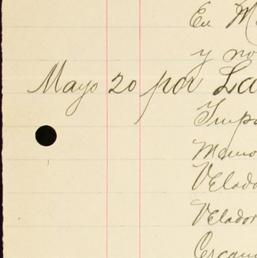 En M
y no
Mayo 20 por La
Imp
Mano
Velado
Velador